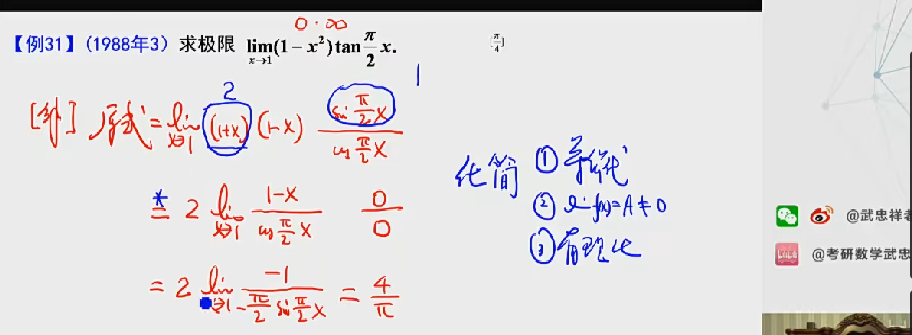 0·∞
【例31】(1988年3) 求极限 lim x→1 (1−x²)tan π/2 x.
π/4
2
1
[解] 原式 = lim x→1 (1+x)(1−x) sin π/2 x / cos π/2 x
* = 2 lim x→1 1−x / cos π/2 x 0/0
= 2 lim x→1 −1 / −π/2 sin π/2 x = 4/π
化简 ① 等价代
② lim f(x)=A≠0
③ 有理化
@武忠祥老
@考研数学武忠